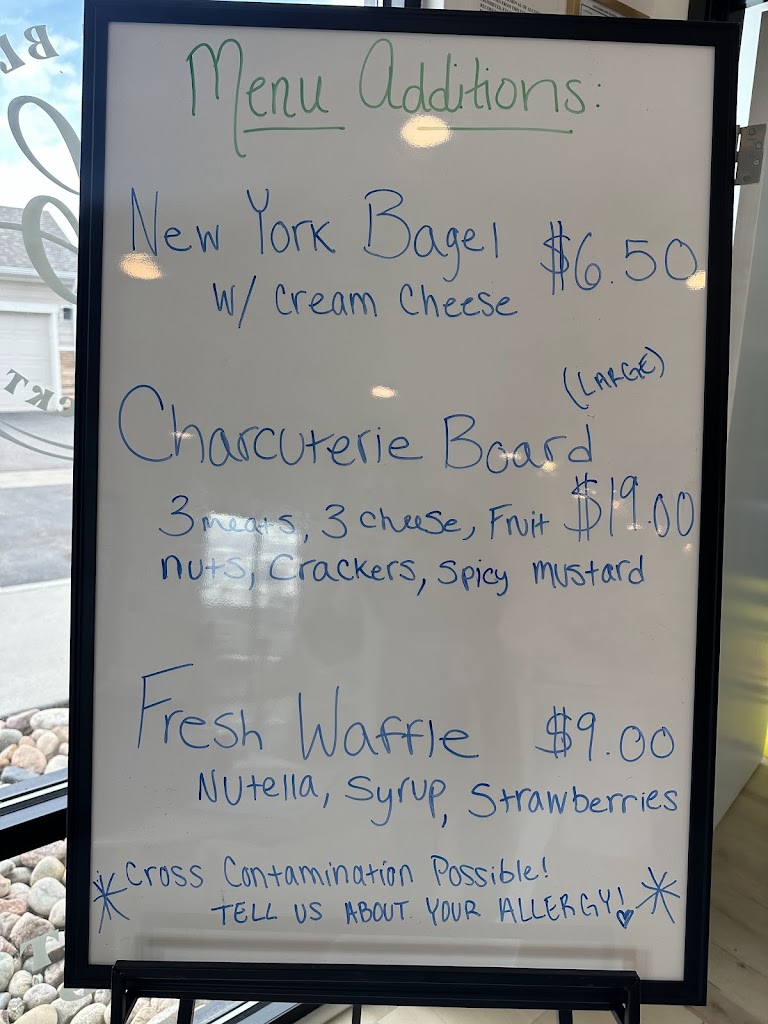 Menu Additions:
New York Bagel $6.50
w/ cream cheese
(LARGE)
Charcuterie Board
3 meats, 3 cheese, Fruit $19.00
nuts, Crackers, spicy mustard
Fresh Waffle $9.00
Nutella, Syrup, Strawberries
*Cross Contamination Possible!
TELL US ABOUT YOUR ALLERGY! *